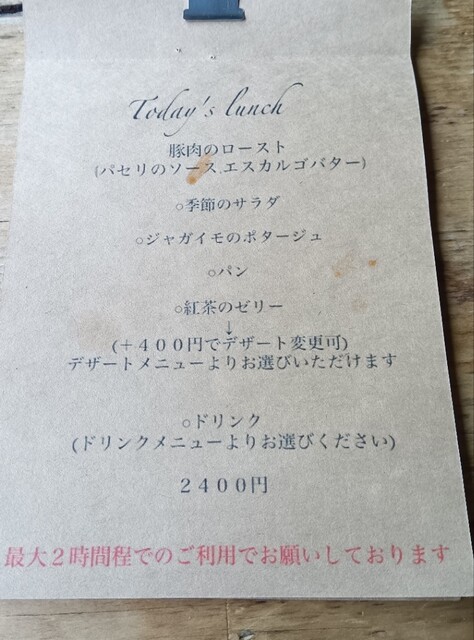 Today's lunch
豚肉のロースト
(パセリのソース.エスカルゴバター)
○季節のサラダ
○ジャガイモのポタージュ
○パン
○紅茶のゼリー
↓
(＋４００円でデザート変更可)
デザートメニューよりお選びいただけます
○ドリンク
(ドリンクメニューよりお選びください)
２４００円
最大２時間程でのご利用でお願いしております